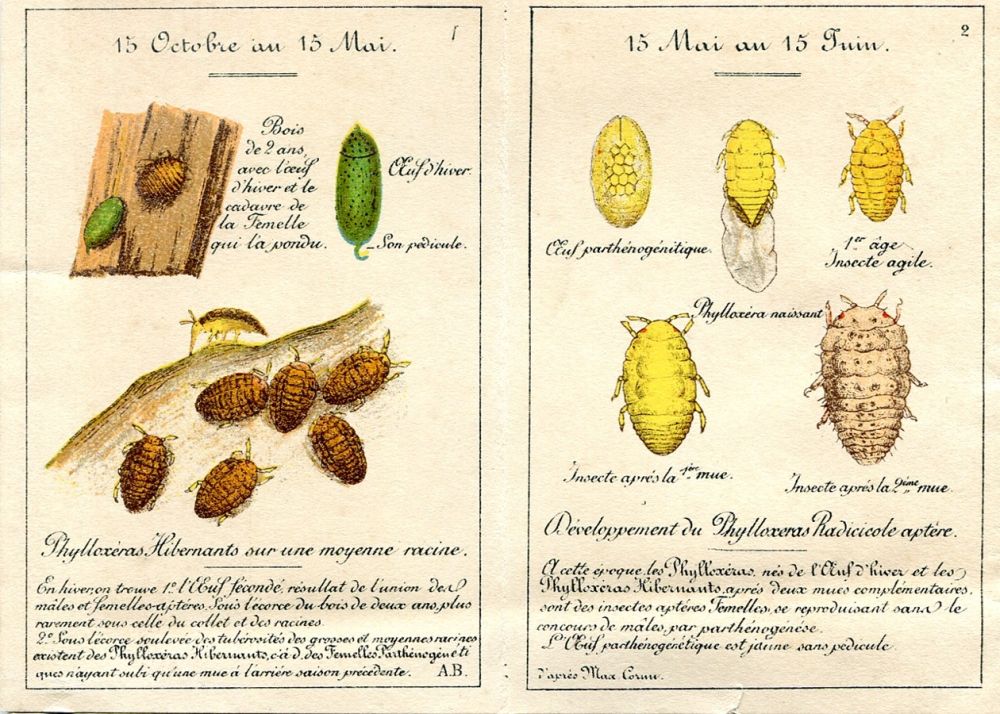 15 Octobre au 15 Mai.
1
Bois
de 2 ans,
avec l'œuf
d'hiver et le
cadavre de
la Femelle
qui l'a pondu.
Œuf d'hiver.
Son pédicule.
Phylloxéras Hibernants sur une moyenne racine.
En hiver, on trouve 1º l'Œuf fécondé, résultat de l'union des
mâles et femelles aptères. Sous l'écorce du bois de deux ans, plus
rarement sous celle du collet et des racines.
2º Sous l'écorce soulevée des tubérosités des grosses et moyennes racines
existent des Phylloxéras Hibernants, c.à.d. des Femelles Parthénogénéti
ques n'ayant subi qu'une mue à l'arrière saison précédente.
A.B.
15 Mai au 15 Juin.
2
Œuf parthénogénitique.
Phylloxéra naissant
1er âge
Insecte agile.
Insecte aprés la 1ère mue.
Insecte aprés la 2ième mue.
Développement du Phylloxeras Radicicole aptère.
A cette époque, les Phylloxéras, nés de l'Œuf d'hiver et les
Phylloxéras Hibernants, aprés deux mues complémentaires,
sont des insectes aptéres Femelles, se reproduisant sans le
concours de mâles, par parthénogénèse.
L'Œuf parthénogénétique est jaune sans pédicule.
d'aprés Max. Cornu.